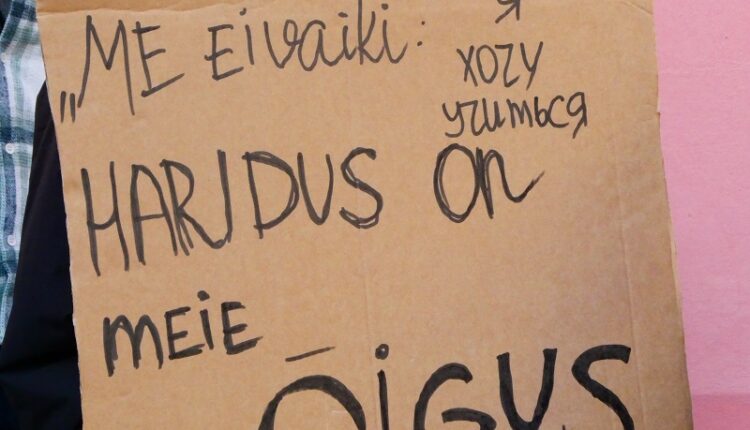 „ME EI vaiki:
Я
хочу
учиться
HARIDUS ON
MEIE
ÕIGUS